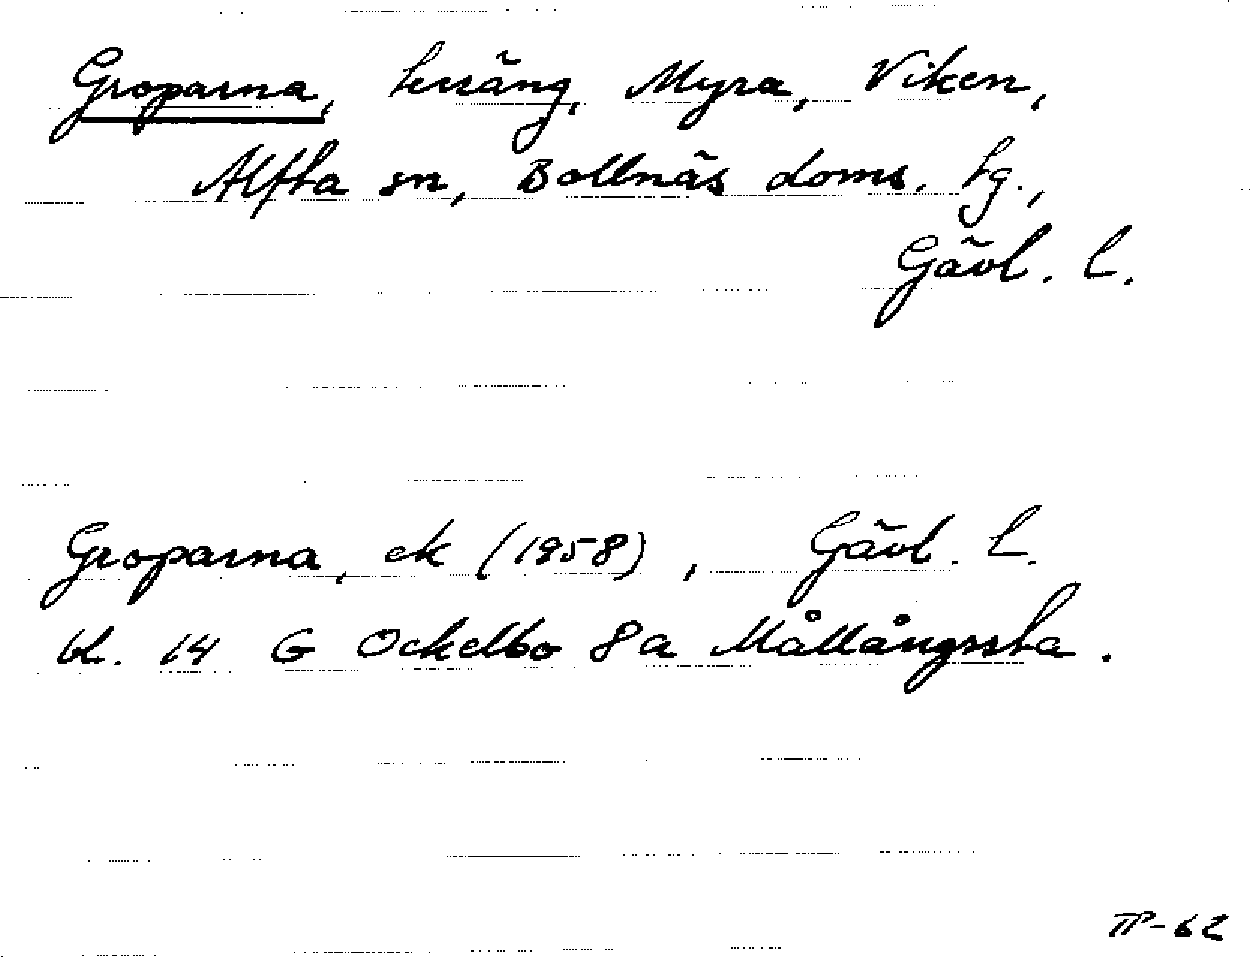 Groparna, terräng, Myra, Viken,
Alfta sn, Bollnäs doms. tg.,
Gävl. l.
Groparna, ek (1958), Gävl. l.
bl. 14 G Ockelbo 8a Mållångssta.
TP-62